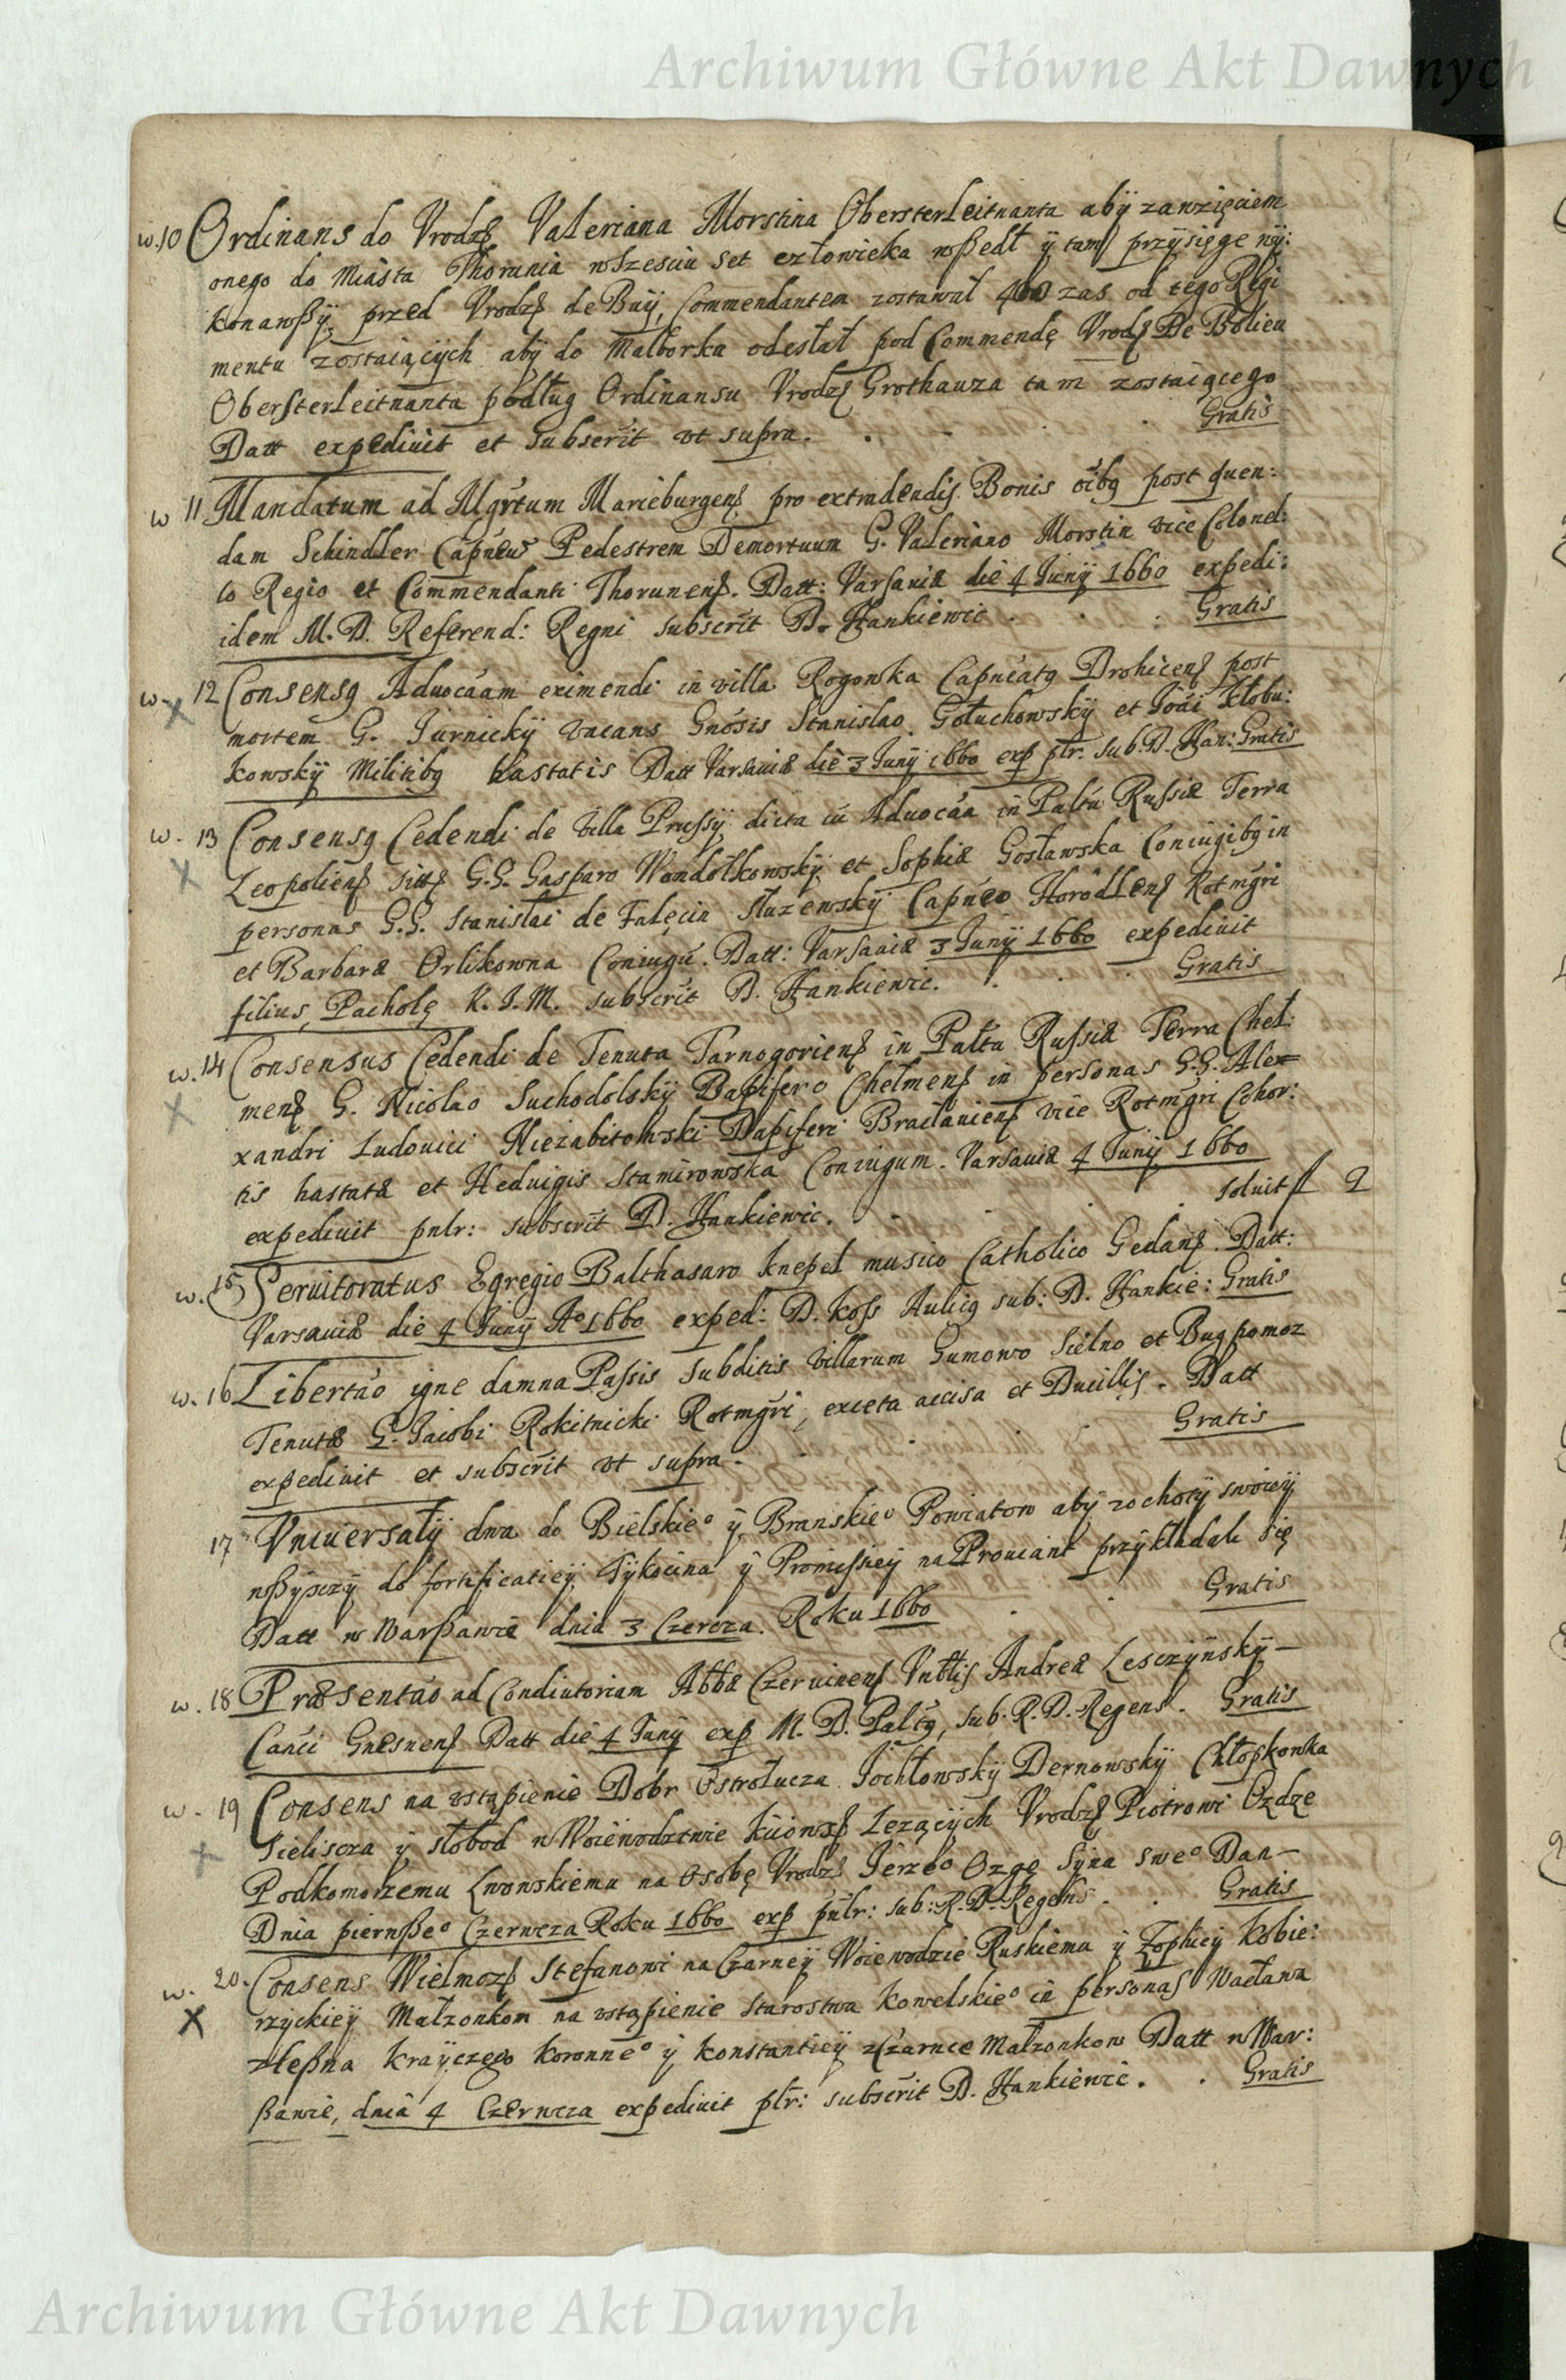 Archiwum Główne Akt Dawnych
w.10 Ordinans do Vrodz Valeriana Morstina Obersterleitnanta abÿ zawzięciem
onego do Miasta Thorunia wszesciu set człowieka wßedł ÿ tam przÿsięge wÿ:
konawßÿ przed Vrodz de Buÿ, Commendantem zostawał 400 zas od tego Regi
mentu zostaiącÿch abÿ do Malborka odesłał pod Commendę Vrodz De Bolieu
Obersterleitnanta podług Ordinansu Vrodz Grothauza tam zostaiącego
Datt expediuit et subscrit vt supra. Gratis
w 11 Mandatum ad Mgrtum Marieburgens pro extradendis Bonis oibq post quen:
dam Schindler Capneu Pedestrem Demortuum G. Valeriano Morstin vice Colonel:
lo Regio et Commendanti Thorunens. Datt: Varsauiæ die 4 Junÿ 1660 expedi:
idem M. D. Referend: Regni subscrit D. Hankiewic. Gratis
w. X 12 Consensq Aduocaam eximendi in villa Rogowka Capneatq Drohicens post
mortem G. Jurnickÿ vacans Gnosis Stanislao Gołuchowskÿ et Joai Kłobu:
kowskÿ Militibq hastatis Datt Varsauiæ die 3 Junÿ 1660 exp ptr. sub. D. Han: Gratis
w. X 13 Consensq Cedendi de Villa Prussÿ dicta cu Aduocaa in Paltu Russiæ Terra
Leopoliens sitts G.G. Gasparo Wondołkowskÿ et Sophiæ Gosławska Coniugibq in
personas G.G. Stanislai de Falęcin Służewskÿ Capneo Horodlens Rotmgri
et Barbaræ Orlikowna Coniugu. Datt: Varsauiæ 3 Junÿ 1660 expediuit
filius, Pacholę K. J. M. subscrit D. Hankiewic. Gratis
w. X 14 Consensus Cedendi de Tenuta Tarnogoriens in Paltu Russiæ Terra Cheł:
mens G. Nicolao Suchodolskÿ Dapifero Chełmens in personas G.G. Ale=
xandri Ludouici Niezabitowski Dapiferi Bracłauiens vice Rotmgri Cohor:
tis hastatæ et Heduigis Stamirowska Coniugum. Varsauiæ 4 Junÿ 1660
expediuit pnlr: subscrit D. Hankiewic. soluit # 2
w. 15 Seruitoratus Egregio Balthasaro Knepel musico Catholico Gedans. Datt:
Varsauiæ die 4 Junÿ Ao 1660 exped: D. Koss Aulicq sub: D. Hankie: Gratis
w. 16 Libertao igne damna Passis subditis Villarum Gumowo Sielno et Bugpomoz
Tenutæ G. Jacobi Rokitnicki Rotmgri, exceta accisa et Ducillis. Datt
expediuit et subscrit vt supra. Gratis
17 Vniuersałÿ dwa do Bielskieo ÿ Branskieo Powiatow abÿ zochotÿ swoieÿ
wßÿscÿ do fortificatieÿ Tÿkocina ÿ Promissieÿ na Prouiant przÿkładali się
Datt w Warßawie dnia 3 Czercza. Roku 1660 Gratis
w. 18 Præsentao ad Condiutoriam Abbæ Czeruinens Vnblis Andreæ Lesczÿnskÿ
Canci Gnesnens Datt die 4 Junÿ exp M. D. Paltq, sub. R. D. Regens. Gratis
w. 19 Consens na vstąpienie Dobr Ostrołucza Jochłowskÿ Dernowskÿ Chłopkowka
X Sieliscza ÿ Słobod w Woiewodztwie Kiiowß Lezącÿch Vrodz Piotrowi Ozdze
Podkomorzemu Lwowskiemu na Osobę Vrodz Jerzeo Ozgę Sÿna sweo Dan
Dnia pierwßeo Czerwcza Roku 1660 exp pnlr: sub: R. D. Regens. Gratis
w. 20. Consens Wielmoz Stefanowi na Czarneÿ Woiewodzie Ruskiemu ÿ Zophieÿ Kobie:
X rzÿckieÿ Małzonkom na vstąpienie Starostwa Kowelskieo in personas Wacława
zleßna Kraÿczego Koronneo ÿ Konstantieÿ zCzarnce Małzonkow Datt w War:
ßawie, dnia 4 Czerwcza expediuit ptr: subscrit D. Hankiewic. Gratis
Archiwum Główne Akt Dawnych